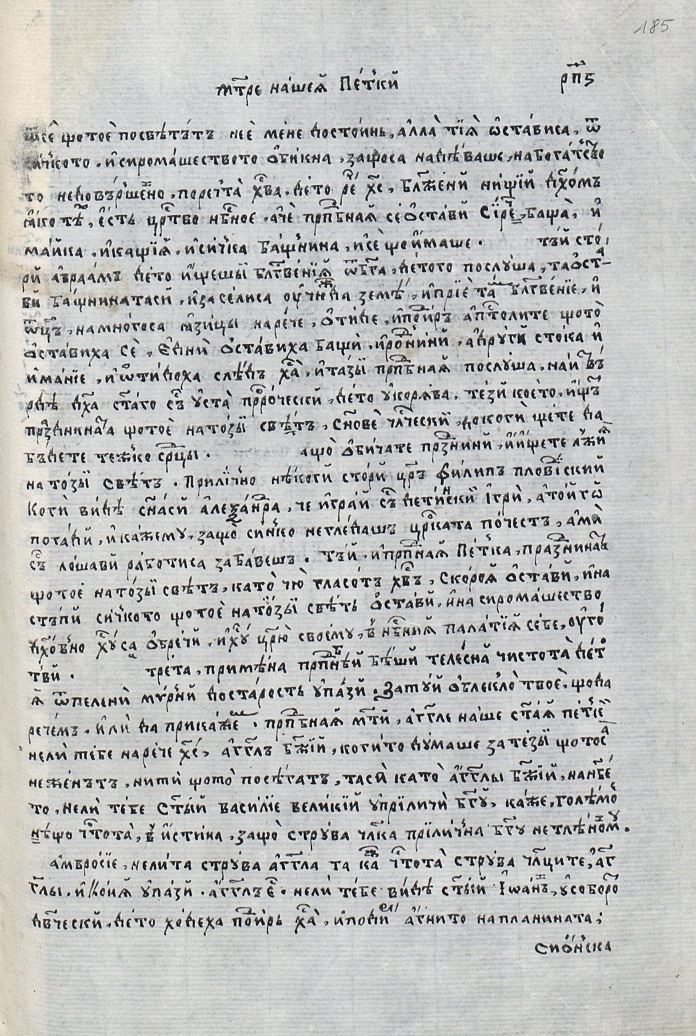 185
мт҃ре на́шеѧ Пе́тки рп҃ѕ
ѿсе́ щотоѐ посвѣ́тътъ неѐ ме́не достои́нь, а́лла тїѧ̀ ѡ҆ста́виса, ѿ
си́чкото. и҆ сирома́шеството ѻ҆ти́кна, за що́са надѣ́ваше, на бога́тство
то недовъ́ршено. поречѐта хв҃а. дѣ́то ре́ч хс҃, бл҃же́ни ни́щїй дх҃омъ
ꙗ҆́ко тѣ́х, є҆́сть црⷭ҇тво нбⷭ҇ное, а҆ чѐ прпⷣбнаѧ сѐ ѻ҆ста́ви Си́рѣч, ба́ща, и҆
ма́йка, и҆ ка́щїѧ, и҆ си́чка ба́щнина, и҆ сѐ що̀ и҆́маше. тъ́й сто́-
ри а҆враа́мъ дѣ́то и҆́щешы бл҃гⷭ҇ве́нїѧ ѿ бг҃а, дѣ́тото послу́ша, та ѻ҆ста́-
ви ба́щнината си, и҆ за се́лиса оу҆ чю́жда земѐ, и҆ прїе́ та бл҃гⷭ҇ве́нїе, и҆
ѻ҆ц҃ъ, на мно́госа ꙗ҆зи́цы наре́че, ѻ҆ти́де, и҆ поди́ръ а҆пⷭ҇то́лите щото̀
ѻ҆ста́виха сѐ, є҆дни́ ѻ҆ста́виха бащи́, и҆ родни́ни, а҆ дру́ги сто́ка и҆
и҆ма́нїе, и҆ ѻ҆тидо́ха слѣдъ хр҃та̀, и҆ та́зы прпⷣбнаѧ послу́ша, наи́ въ
рѣ́дъ дх҃а ст҃аго съ оу҆ста̀ прⷪ҇ро́чески, дѣ́то у҆коръ́ва. те́зи кое́то, и҆́щъ
пра́зднина́та щотоѐ на то́зы свѣ́тъ, сн҃ове чл҃ческїи, доко́ги щѐте да
бъ́дете те́жко срⷣцы. а҆що̀ ѻ҆би́чате пра́зднини, и҆ и҆́щете лъжѝ
на то́зы свѣ́тъ. Прили́чно нѣ́коги сто́ри цр҃ъ филипъ пло́вдиский
Коги́ ви́дѣ сн҃а сѝ алеѯа́ндра, че и҆гра́й съ дѣти́нски и҆грѝ, а҆ то́й го̀
потпа́ди, и҆ ка́жему, защо̀ си́нко не глѣ́дашъ цр҃ката по́честъ, а҆мѝ
съ лоша́ви ра́ботиса заба́вешъ. тъ́й, и҆ прпⷣбнаѧ Пе́тка, пра́зднина́та
щотоѐ на то́зы свѣ́тъ, ка́то чю̀ гла́сотъ хв҃ъ, Ско́роѧ ѻ҆ста́ви, и҆ на
стѫ́пи си́чкото щотоѐ на то́зы свѣ́тъ ѻ҆ста́ви, и҆ на сирома́шество
дх҃о́вно хр҃ту́са ѻ҆брѐчи, и҆ хр҃ту̀ цр҃ю̀ своему̀, в нбⷭ҇нїѧ пала́тїѧ се́бе, оу҆гото́
тви. тре́та, примѣ́на прпⷣбній бѣ́ши теле́сна чистота̀ дѣ́т
ѧ҆ ѿ пеленѝ мїрній до ста́рость у҆пази́. за ту́й ѻ҆блекло̀ твоѐ. що̀ да
рече́мъ. и҆лѝ да прика́жеш. прпⷣбнаѧ мт҃и, а҆́гг҃ле на́ше ст҃а́ѧ пе́тко
нели̂ те́бе наре́че хс҃, а҆́гг҃лъ бж҃їй, коги́то ду́маше за те́зы щотоса̀
нежѐнътъ, ниті̀ щото̀ посѣ́гатъ, тасѧ̀ ка́то а҆́гг҃лы бж҃їй, на нбⷭ҇е
то, нели̂ те́бе ст҃ый васи́лїе вели́кїй у҆прїли́чи бг҃у, ка́же, голѣ́мо
нѣ́що чⷭ҇тота̀, в и҆́стина, защо̀ стру́ва чл҃ка прїли́чна бг҃у нетлѣ́нному.
амбро́сїе, нели́та стру́ва а҆́гг҃ла та ка́ чⷭ҇тота̀ стру́ва чл҃ците, а҆́г-
г҃лы. и҆ Коиѧ̀ у҆пази́. а҆́гг҃лъ є҆́. нели̂ те́бе ви́дѣ ст҃ый І҆ѡа́ннъ, у҆ собо́рѡ
дв҃ческїй, дѣ́то ходѐха поди́ръ хр҃та̀, и҆ подиръ а҆́гнито на планина́та;
Сїѡ́нска